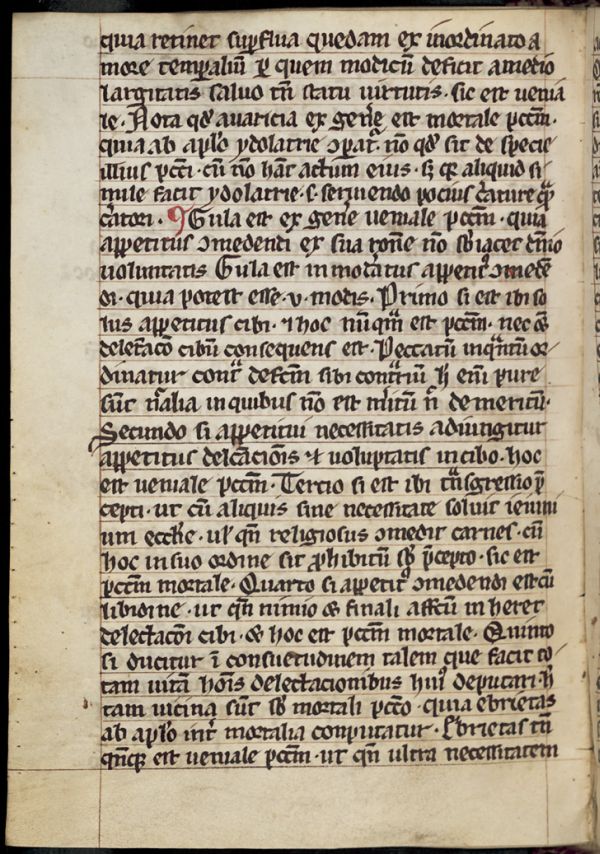 quia retinet supflua quedam ex inordinato a
more tempaliū p quem modicū deficit a medio
largitatis saluo tn̄ statu uirtutis · sic est uenia
le · Nota qd̓ auaricia ex gen̓e est mortale pcc̄m ·
quia ab aplo ydolatrie ɔpat᷑ · nō qd̓ sit de specie
illius pcc̄i · cū nō hāt actum eius · sꝫ qꝛ aliquid si
mile facit ydolatrie · s · seruiendo pocius c̓ature qᷓ
c̓atori · ¶ Gula est ex gen̓e ueniale pcc̄m · quia
appetitus ɔmedendi ex sua rōne nō sb̓iacet dn̄io
uoluntatis Gula est in mod̓atus appetit᷒ ɔmedē
di · quia potest esse · v · modis · Primo si est ibi so
lus appetitus cibi · ⁊ hoc nūqᷓm est pcc̄m · nec &
delectac̄o cibū consequens est · Peccatū inqᷓntū or
dinatur contᷓ defcm̄ sibi contᷓriū h̓ eni᷒ pure
sūt nᷓalia in quibus nō est m̓itū n̓ demeritū ·
Secundo si appetitui necessitatis adiungitur
appetitus delc̄acionis ⁊ uoluptatis in cibo · hoc
est ueniale pcc̄m · Tercio si est ibi tᷓnsgressio p̄
cepti · ut cū aliquis sine necessitate soluit ieiuni
um eccl̓ie · ul̓ qn̄ religiosus ɔmedit carnes · cū
hoc in suo ordine sit ꝓhibitū sb̓ p̄cepto · sic est
pcc̄m mortale · Quarto si appetit᷒ ɔmedendi est cū
libidine · ut qn̄ nimio & finali affc̄u in heret
delectac̄oni cibi · & hoc est pcc̄m mortale · Quinto
si ducitur ī consuetudinem talem que facit to
tam uitā hōis delectacionibus hui᷒ deputari · h̓
tam uicina sūt sb̓ mortali pcc̄o · quia ebrietas
ab aplo int̓ mortalia conputatur · Ebrietas tn̄
qn̄qꝫ est ueniale pcc̄m · ut qn̄ ultra necessitatem